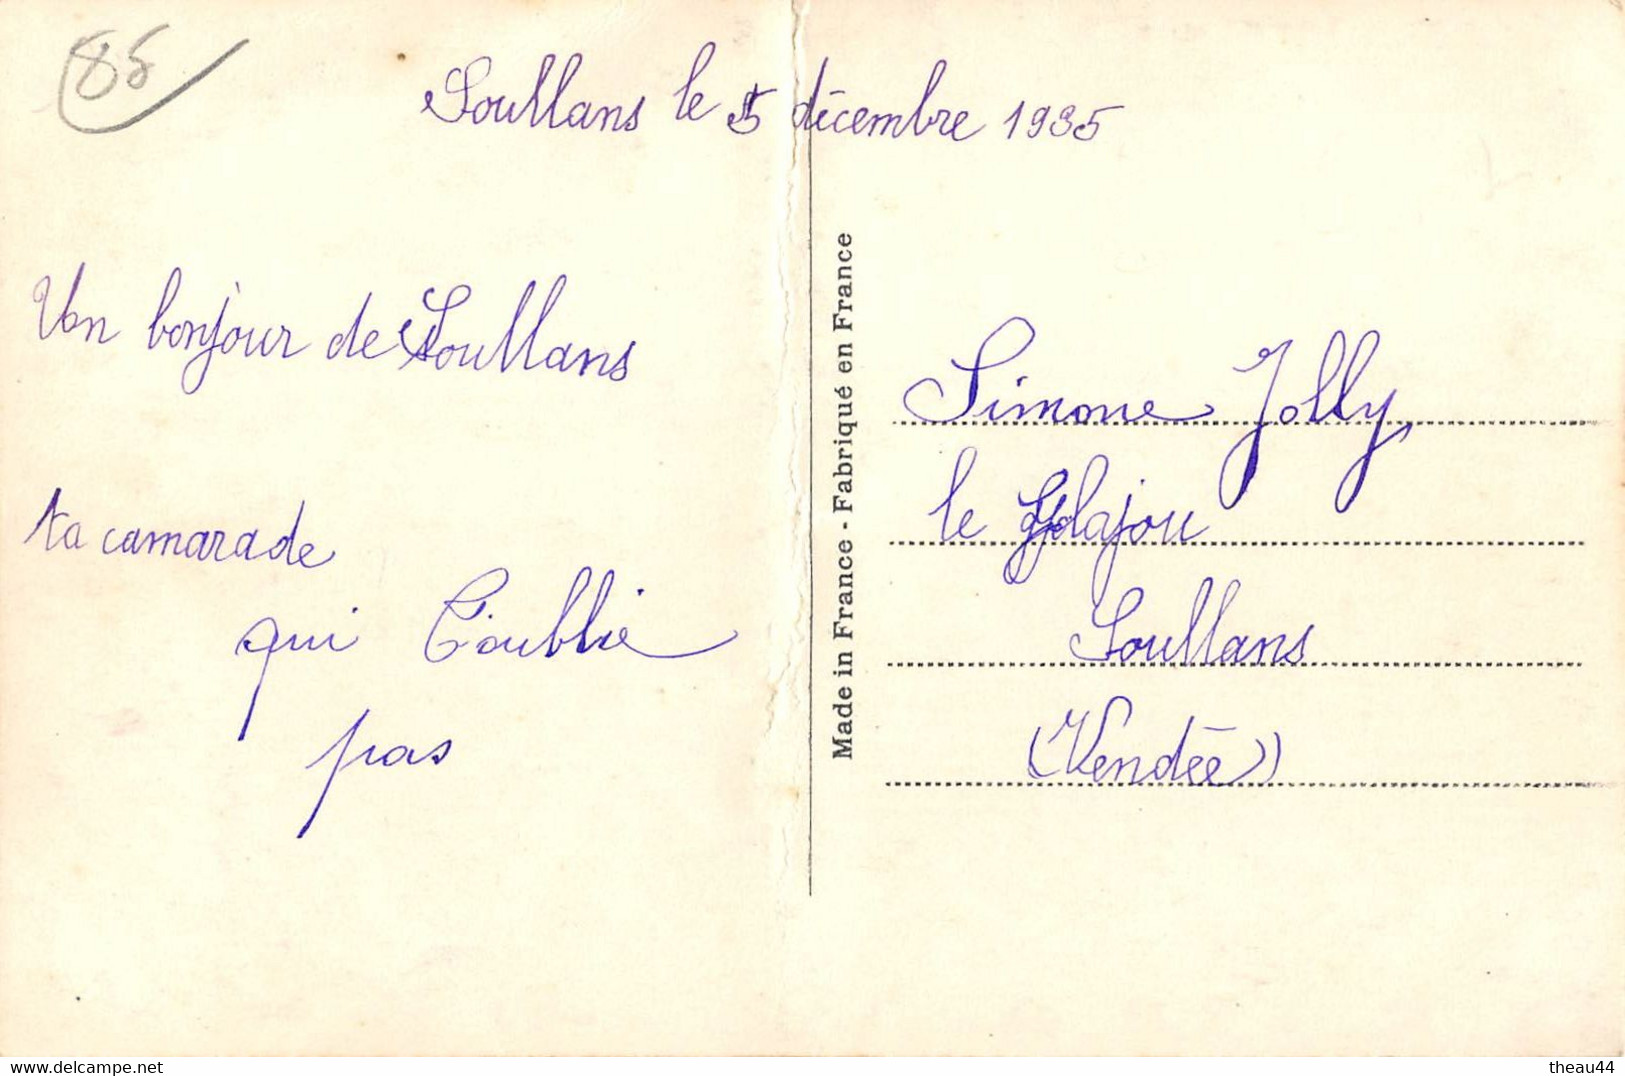 85
Soullans le 5 décembre 1935
Un bonjour de Soullans
ta camarade
qui t'oublie
pas
Made in France - Fabriqué en France
Simone Jolly
le
Soullans
(Vendée)
delcampe.net
theau44